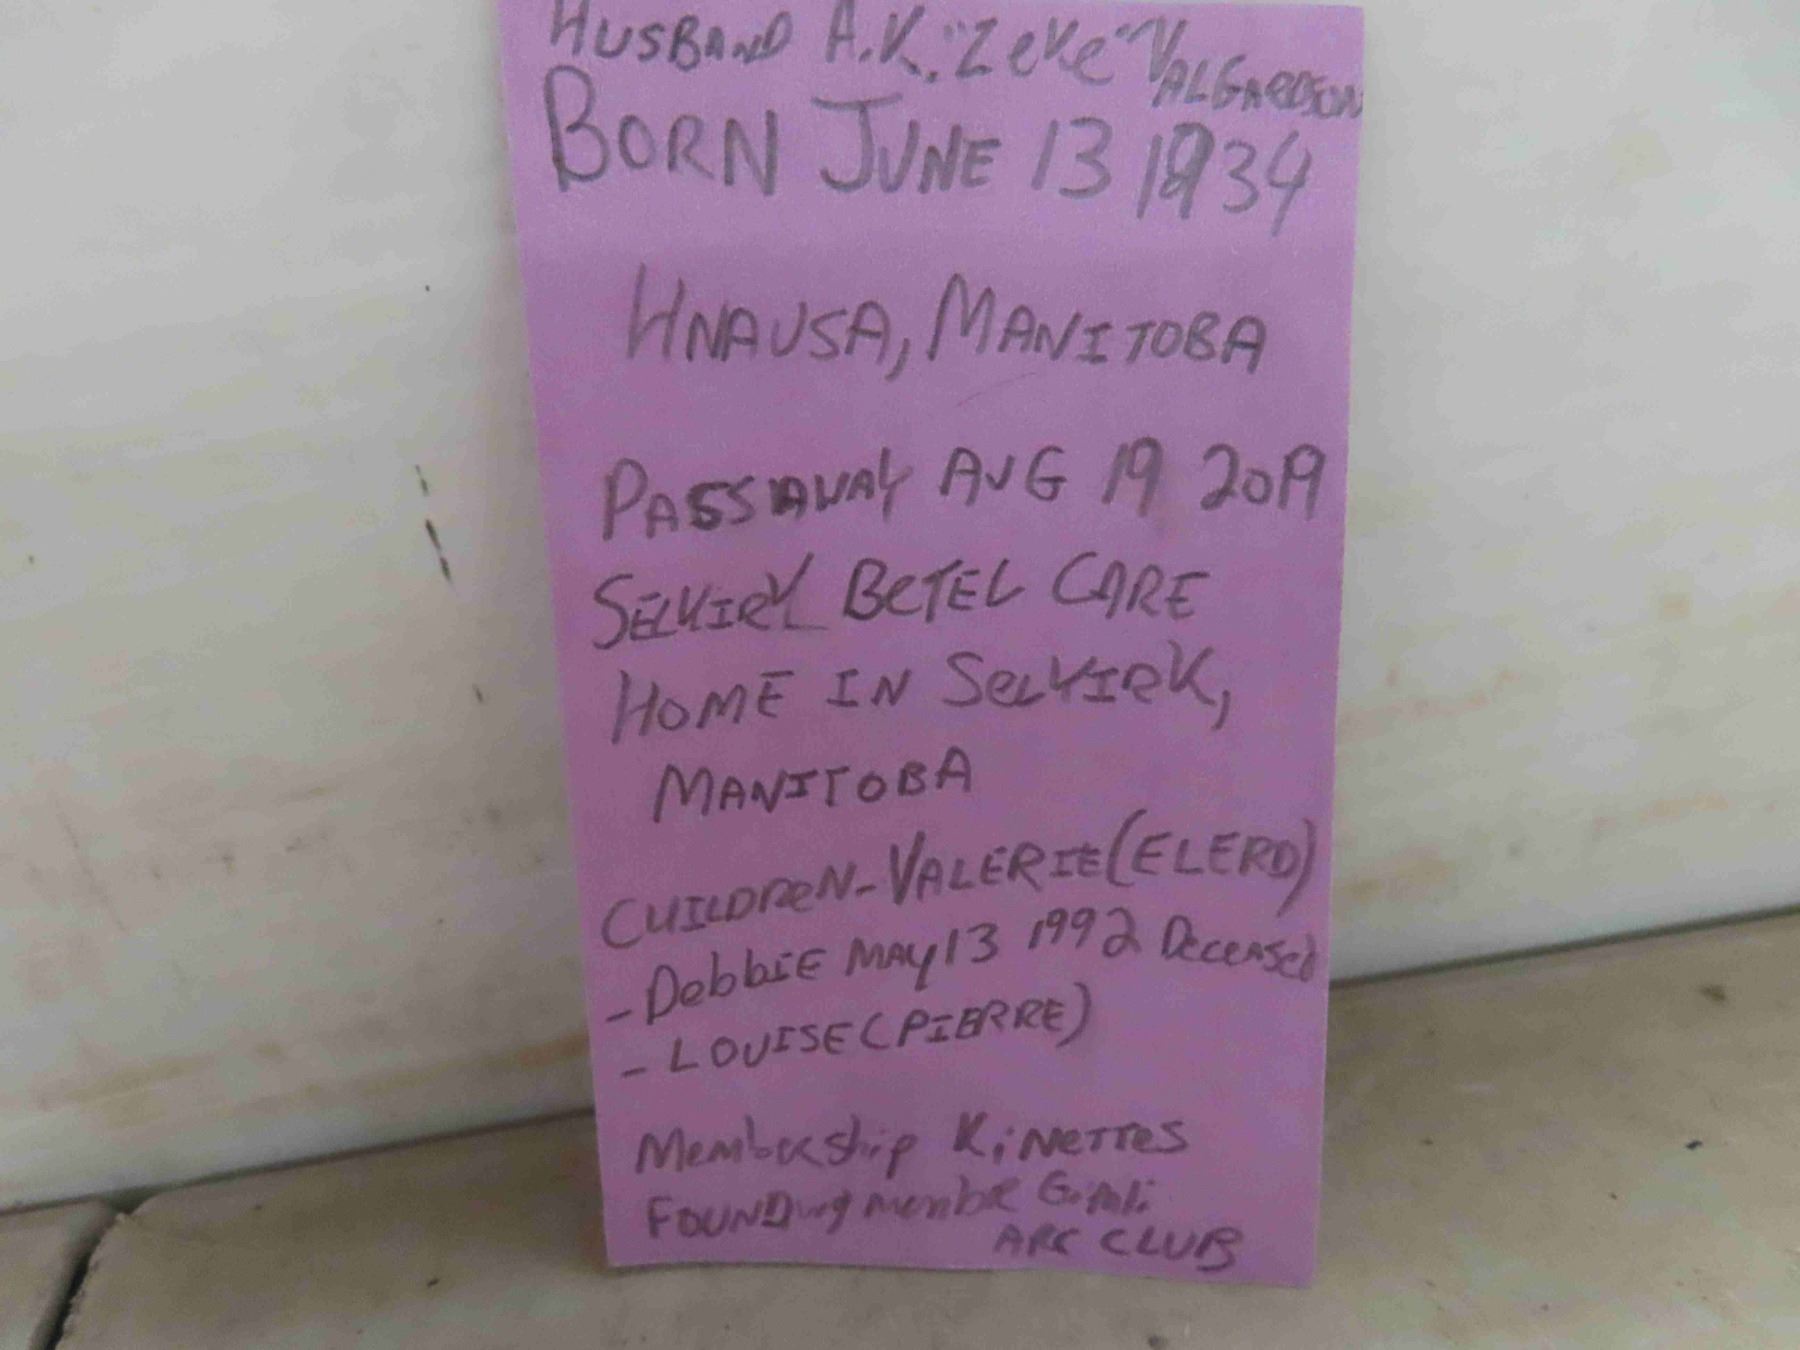 HUSBAND A.K. "ZeKe" VALGARDSON
BORN JUNE 13 1934
HNAUSA, MANITOBA
PASSAWAY AUG 19 2019
SELKIRK BeTEL CARE
HOME IN SeLKIRK,
MANITOBA
CHILDReN-VALERIE (ELERD)
- DebbIE MAY 13 1992 DeceASed
- LOUISE (PIERRE)
Membership KiNeTTeS
FOUNDing membre Gimli
ARC CLUB